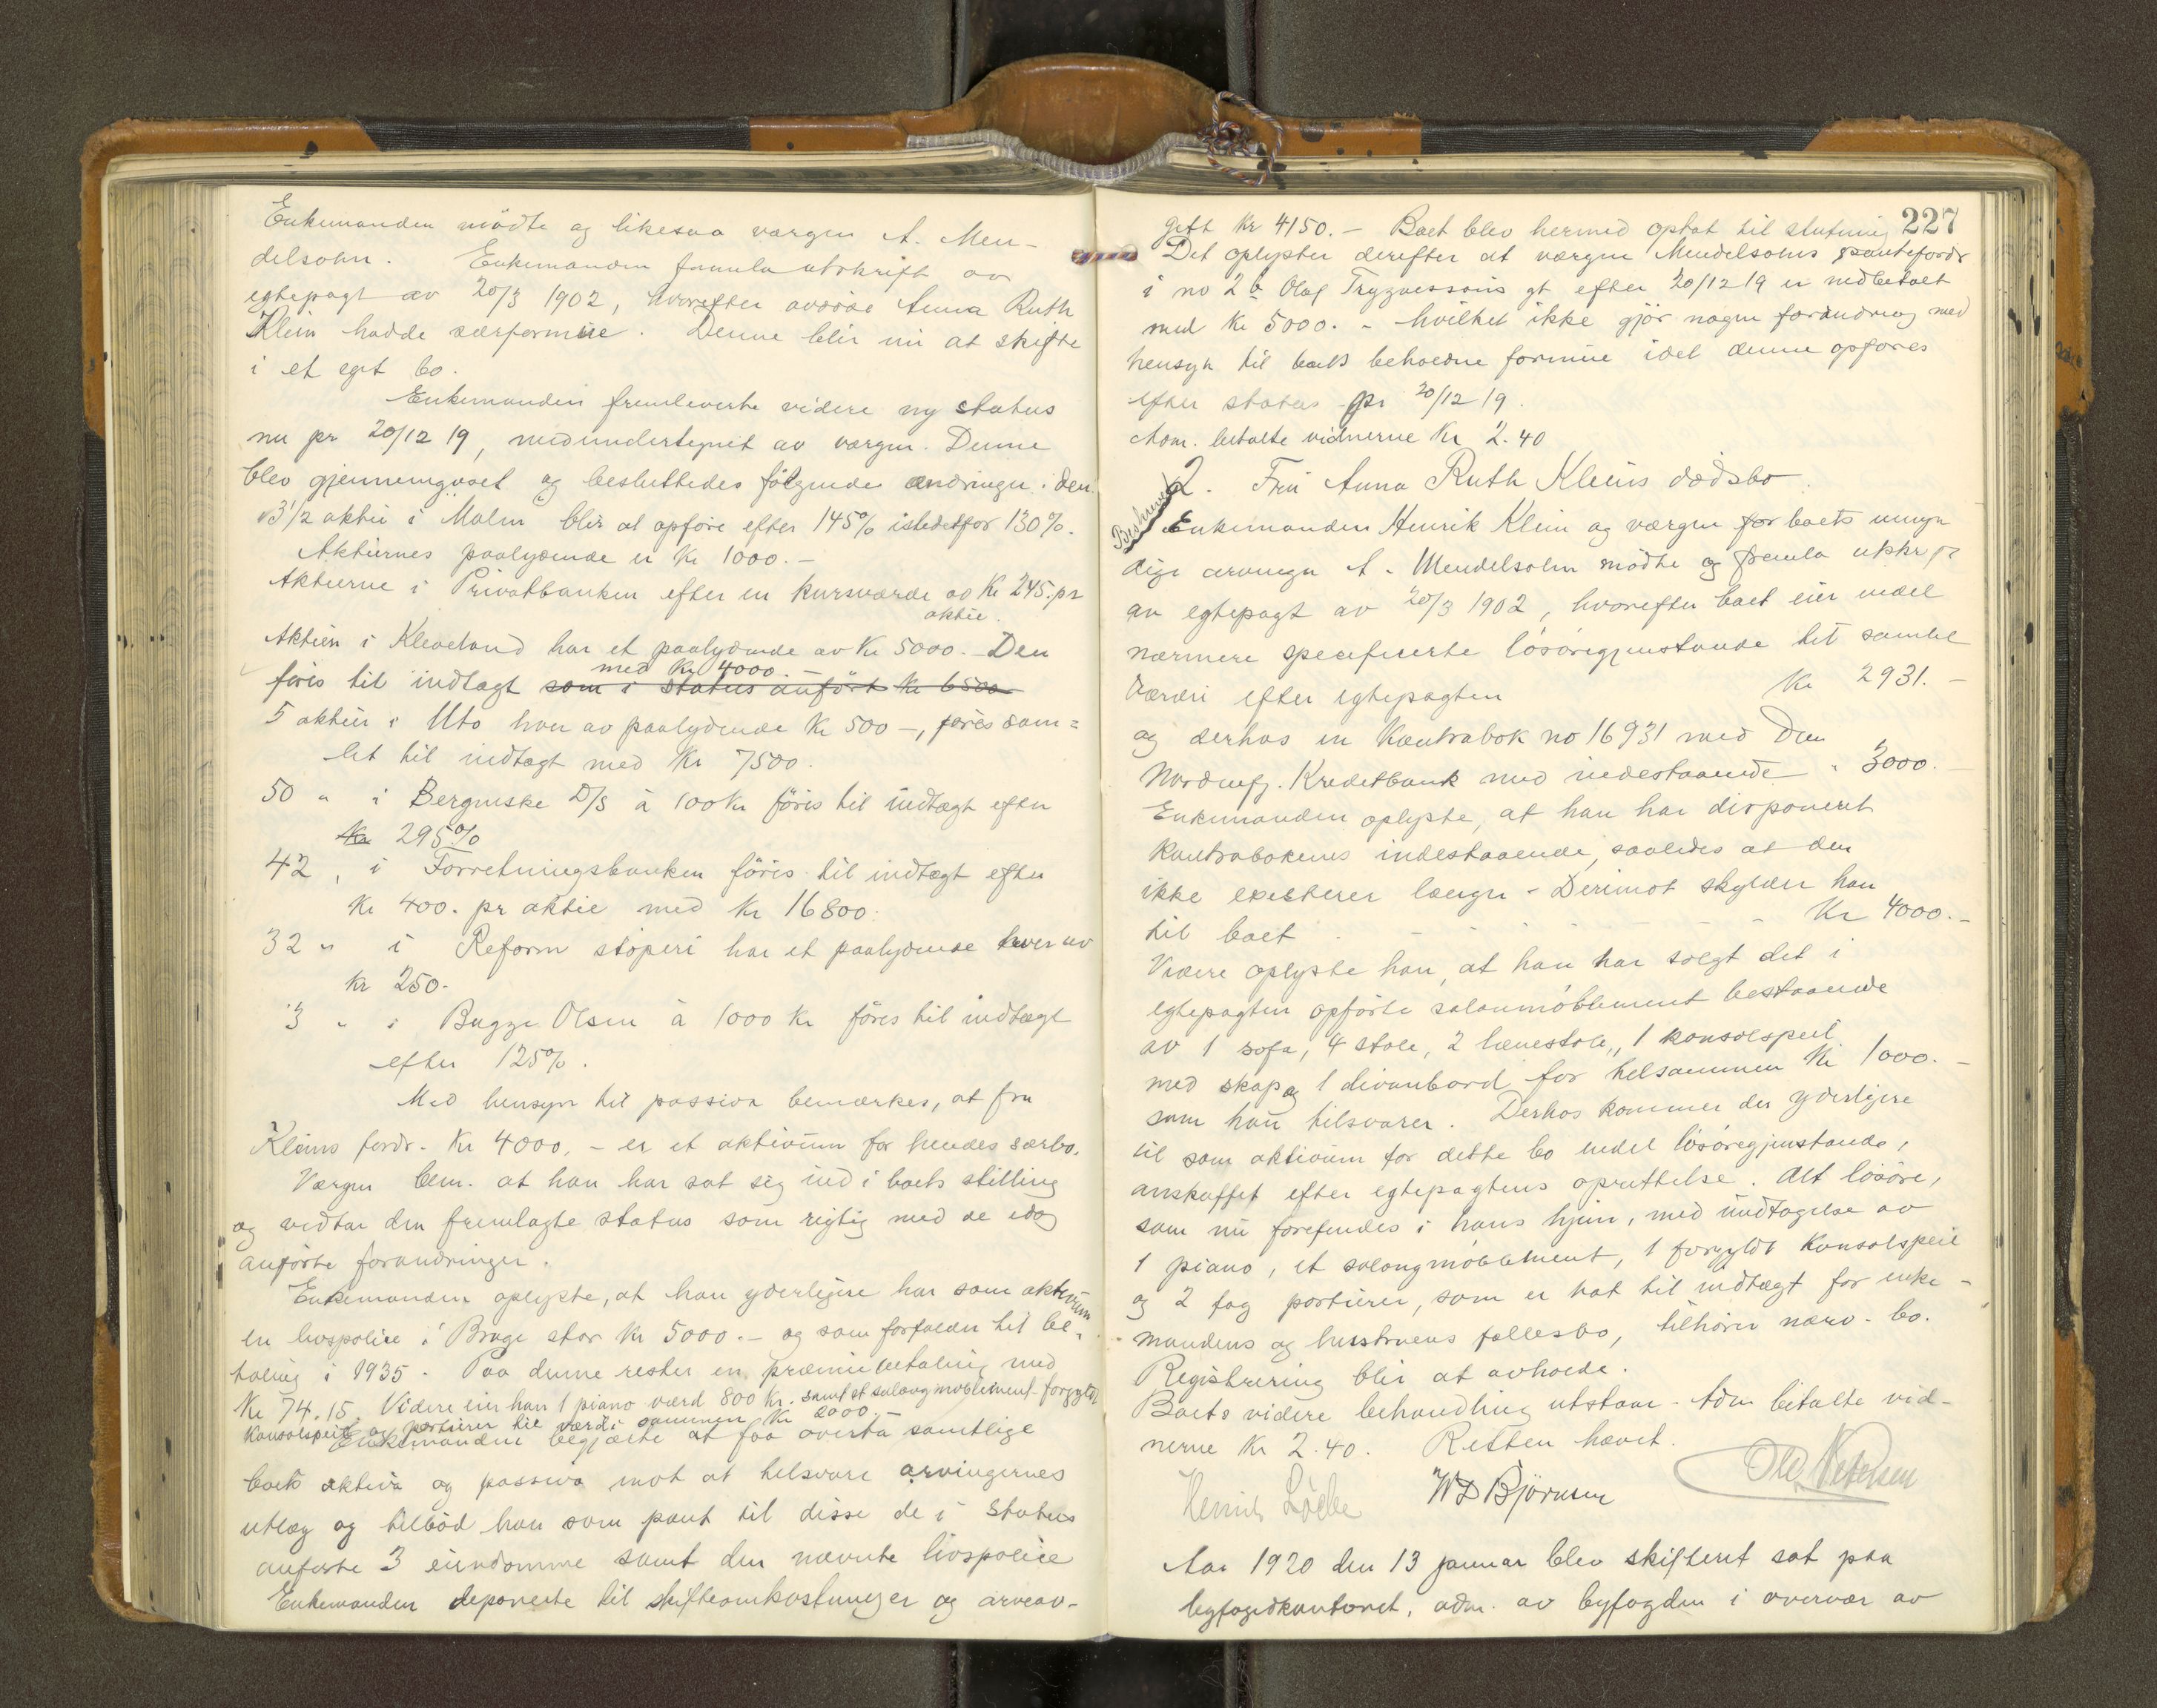 Enkemanden mödte og likesaa vergen A. Men-
delsohn. Enkemanden fremla utskrift av
egtepagt av 20/3 1902, hvorefter avdöde Anna Ruth
Klein hadde særformue. Denne blir nu at skifte
i et eget bo.
Enkemanden fremleverte videre ny status
nu pr 20/12 19, medundertegnet av vergen. Denne
blev gjennemgaaet og besluttedes følgende ændringer i den.
3 1/2 aktie i Malm blir at opföre efter 145% istedetfor 130%.
Aktiernes paalydende er Kr 1000.-
Aktierne i Privatbanken efter en kursværdi av Kr 245. pr
aktie.
Aktien i Kleveland har et paalydende av Kr 5000.- Den
med Kr 4000.-
föres til indtægt som i status anfört Kr 6500
5 aktier i Uto hver av paalydende Kr 500 -, föres sam=
let til indtægt med Kr 7500.
50 " i Bergenske D/S à 100 Kr föres til indtægt efter
Kr 295%
42 " i Forretningsbanken föres til indtægt efter
Kr 400. pr aktie med Kr 16800.
32 " i Reform stöperi har et paalydende hver av
Kr 250.
3 " i Bugge Olsen à 1000 Kr föres til indtægt
efter 125%.
Med hensyn til passiva bemærkes, at fru
Kleins fordr. Kr 4000. - er et aktivum for hendes særbo.
Vergen bem. at han har sat sig ind i boets stilling
og vedtar den fremlagte status som rigtig med de idag
anförte forandringer.
Enkemanden oplyste, at han yderligere har som aktivum
en livspolice i Brage stor Kr 5000.- og som forfalder til be-
taling i 1935. Paa denne rester en præmiebetaling med
Kr 74.15. Videre eier han 1 piano værd 800 Kr. samt et salongmöblement forgyldt
Konsolspeil og portierer til værdi sammen Kr 2000.-
Enkemanden begjærte at faa overta samtlige
boets aktiva og passiva mot at tilsvare arvingernes
utlæg og tilböd han som pant til disse de i status
anförte 3 eiendomme samt den nævnte livspolice
Enkemanden deponerte til skifteomkostninger og arveav-
227
gift Kr 4150.- Boet blev hermed optat til slutning
Det oplystes derefter at vergen Mendelsohns pantefordr
i no 2b Olaf Trygvessöns gt efter 20/12 19 er nedbetalt
med Kr 5000. - hvilket ikke gjör nogen forandring med
hensyn til boets beholdne formue idet denne opföres
efter status pr 20/12 19.
Adm. betalte vidnerne Kr 2.40
Beskrevet
2. Fru Anna Ruth Kleins dödsbo.
Enkemanden Henrik Klein og vergen for boets umyn
dige arvinger A. Mendelsohn mödte og fremla utskr
av egtepagt av 20/3 1902, hvorefter boet eier endel
nærmere specificerte lösöregjenstande til samlet
værdi efter egtepagten Kr 2931.-
og derhos en Kontrabok no 16931 med Den
Nordenfj. Kreditbank med indestaaende " 3000.-
Enkemanden oplyste, at han har disponeret
Kontrabokens indestaaende, saaledes at den
ikke existerer længer. Derimot skylder han
til boet - - - - Kr 4000.-
Videre oplyste han, at han har solgt det i
egtepagten opförte salonmöblement bestaaende
av 1 sofa, 4 stole, 2 lænestole, 1 konsolspeil
med skap og 1 divanbord for tilsammen Kr 1000.-
som han tilsvarer. Derhos kommer der yderligere
til som aktivum for dette bo endel lösöregjenstande,
anskaffet efter egtepagtens oprettelse. Alt lösöre,
som nu forefindes i hans hjem, med undtagelse av
1 piano, et salongmöblement, 1 forgyldt Konsolspeil
og 2 fag portierer, som er tat til indtægt for enke-
mandens og hustruens fællesbo, tilhörer nærv. bo.
Registrering blir at avholde.
Boets videre behandling utstaar. Adm betalte vid-
nerne Kr 2.40. Retten hævet.
W D Björnsen
Aar 1920 den 13 januar blev skifteret sat paa
byfogedkontoret, adm. av byfogden i overvær av